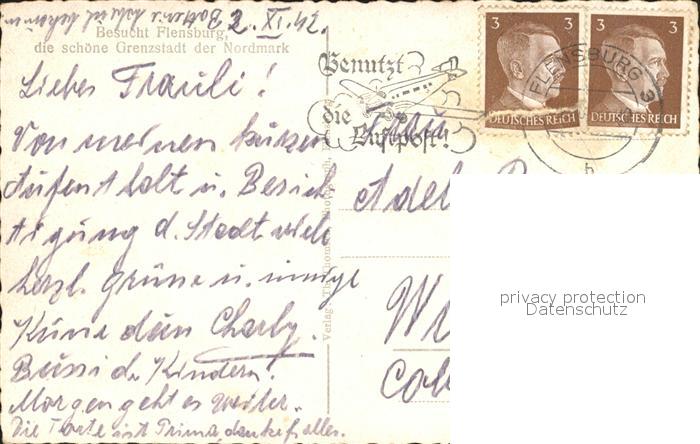 2. XI. 42.
Besucht Flensburg,
die schöne Grenzstadt der Nordmark
Liebes Frauli!
Von meinem kurzen
Aufenthalt u. Besich
tigung d. Stadt viele
herzl. Grüsse u. innige
Küsse dein Charly.
Bussi d. Kindern!
Morgen geht es weiter.
Die Torte ist Prima danke f. alles.
Benutzt
die
Luftpost!
3
3
DEUTSCHES REICH
DEUTSCHES REICH
FLENSBURG 3
b
Adel
Verlag
privacy protection
Datenschutz